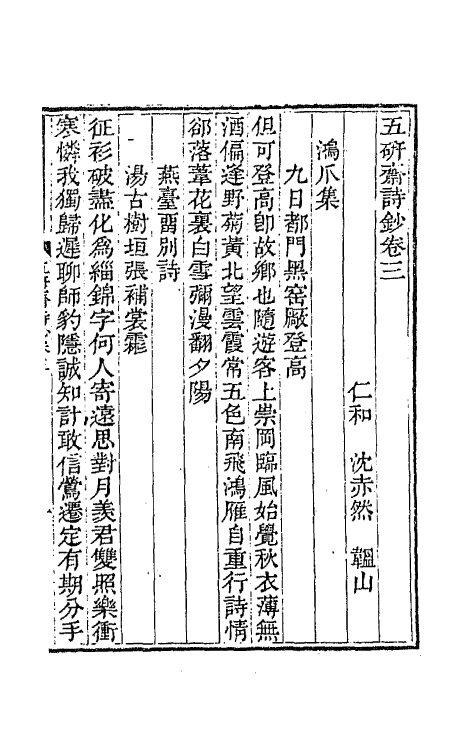 五硏齋詩鈔卷三
仁和　沈赤然　韞山
鴻爪集
九日都門黑窑厰登高
但可登高卽故鄉也隨遊客上崇岡臨風始覺秋衣薄無
酒偏逢野菊黃北望雲霞常五色南飛鴻雁自重行詩情
郤落葦花裏白雪彌漫翻夕陽
燕臺畱別詩
湯古樹垣張補裳霍
征衫破盡化爲緇錦字何人寄遠思對月羨君雙照樂衝
寒憐我獨歸遲聊師豹隱誠知計敢信鶯遷定有期分手